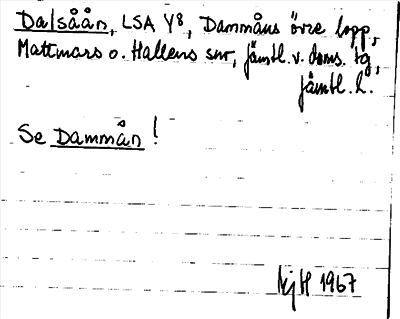 Dalsåån, LSA Y8, Dammåns övre lopp,
Mattmars o. Hallens snr, Jämtl. v. doms. tg,
Jämtl. l.
Se Dammån!
NjH 1967